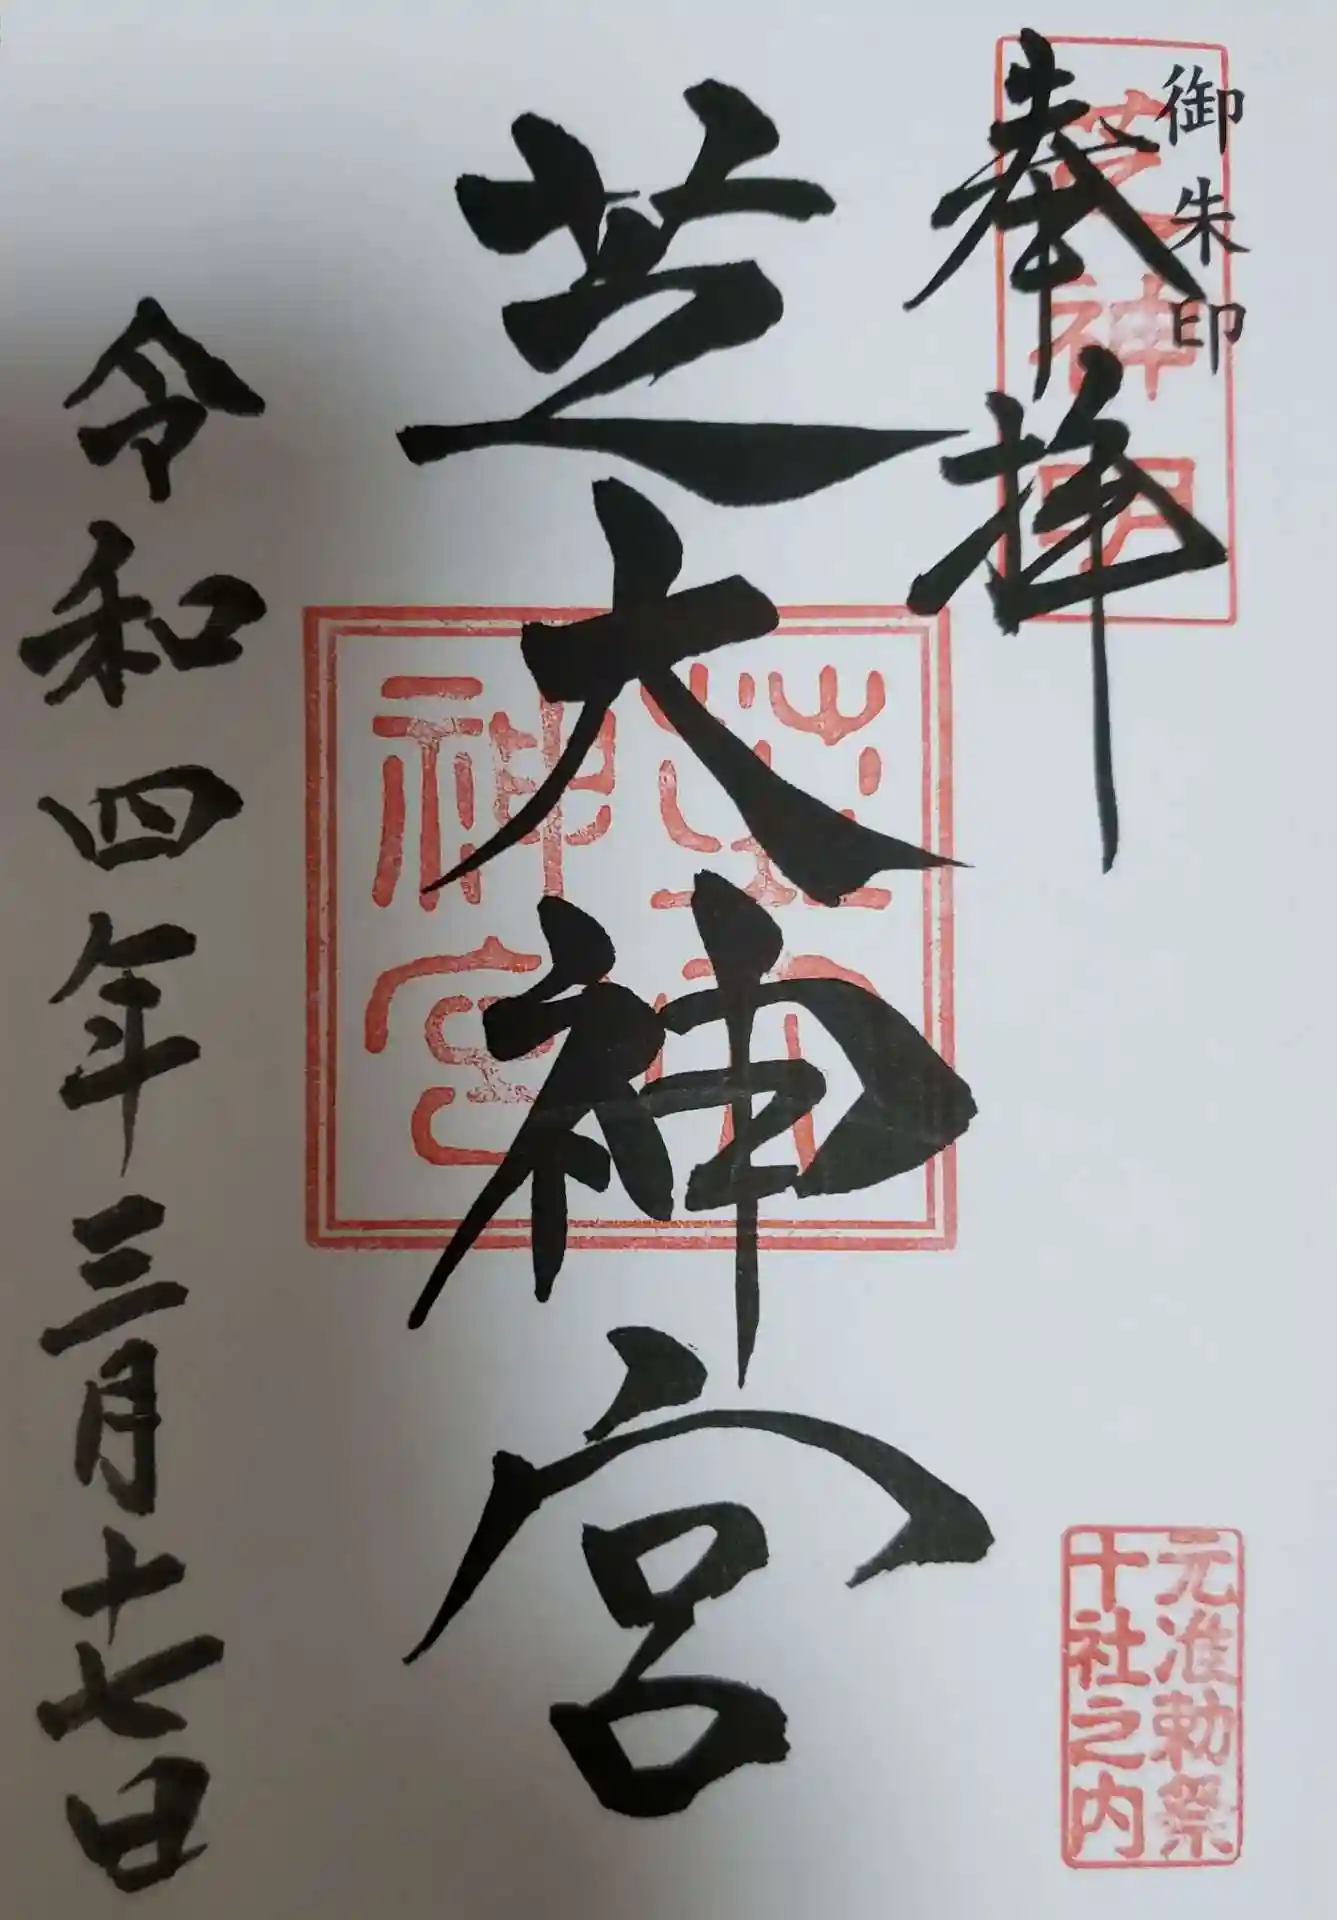 御朱印
奉拝
芝神明
芝大神宮
芝大
神宮
元准勅祭
十社之内
令和四年三月十七日